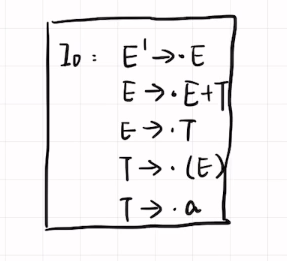 I₀: E' → ·E
E → ·E+T
E → ·T
T → ·(E)
T → ·a